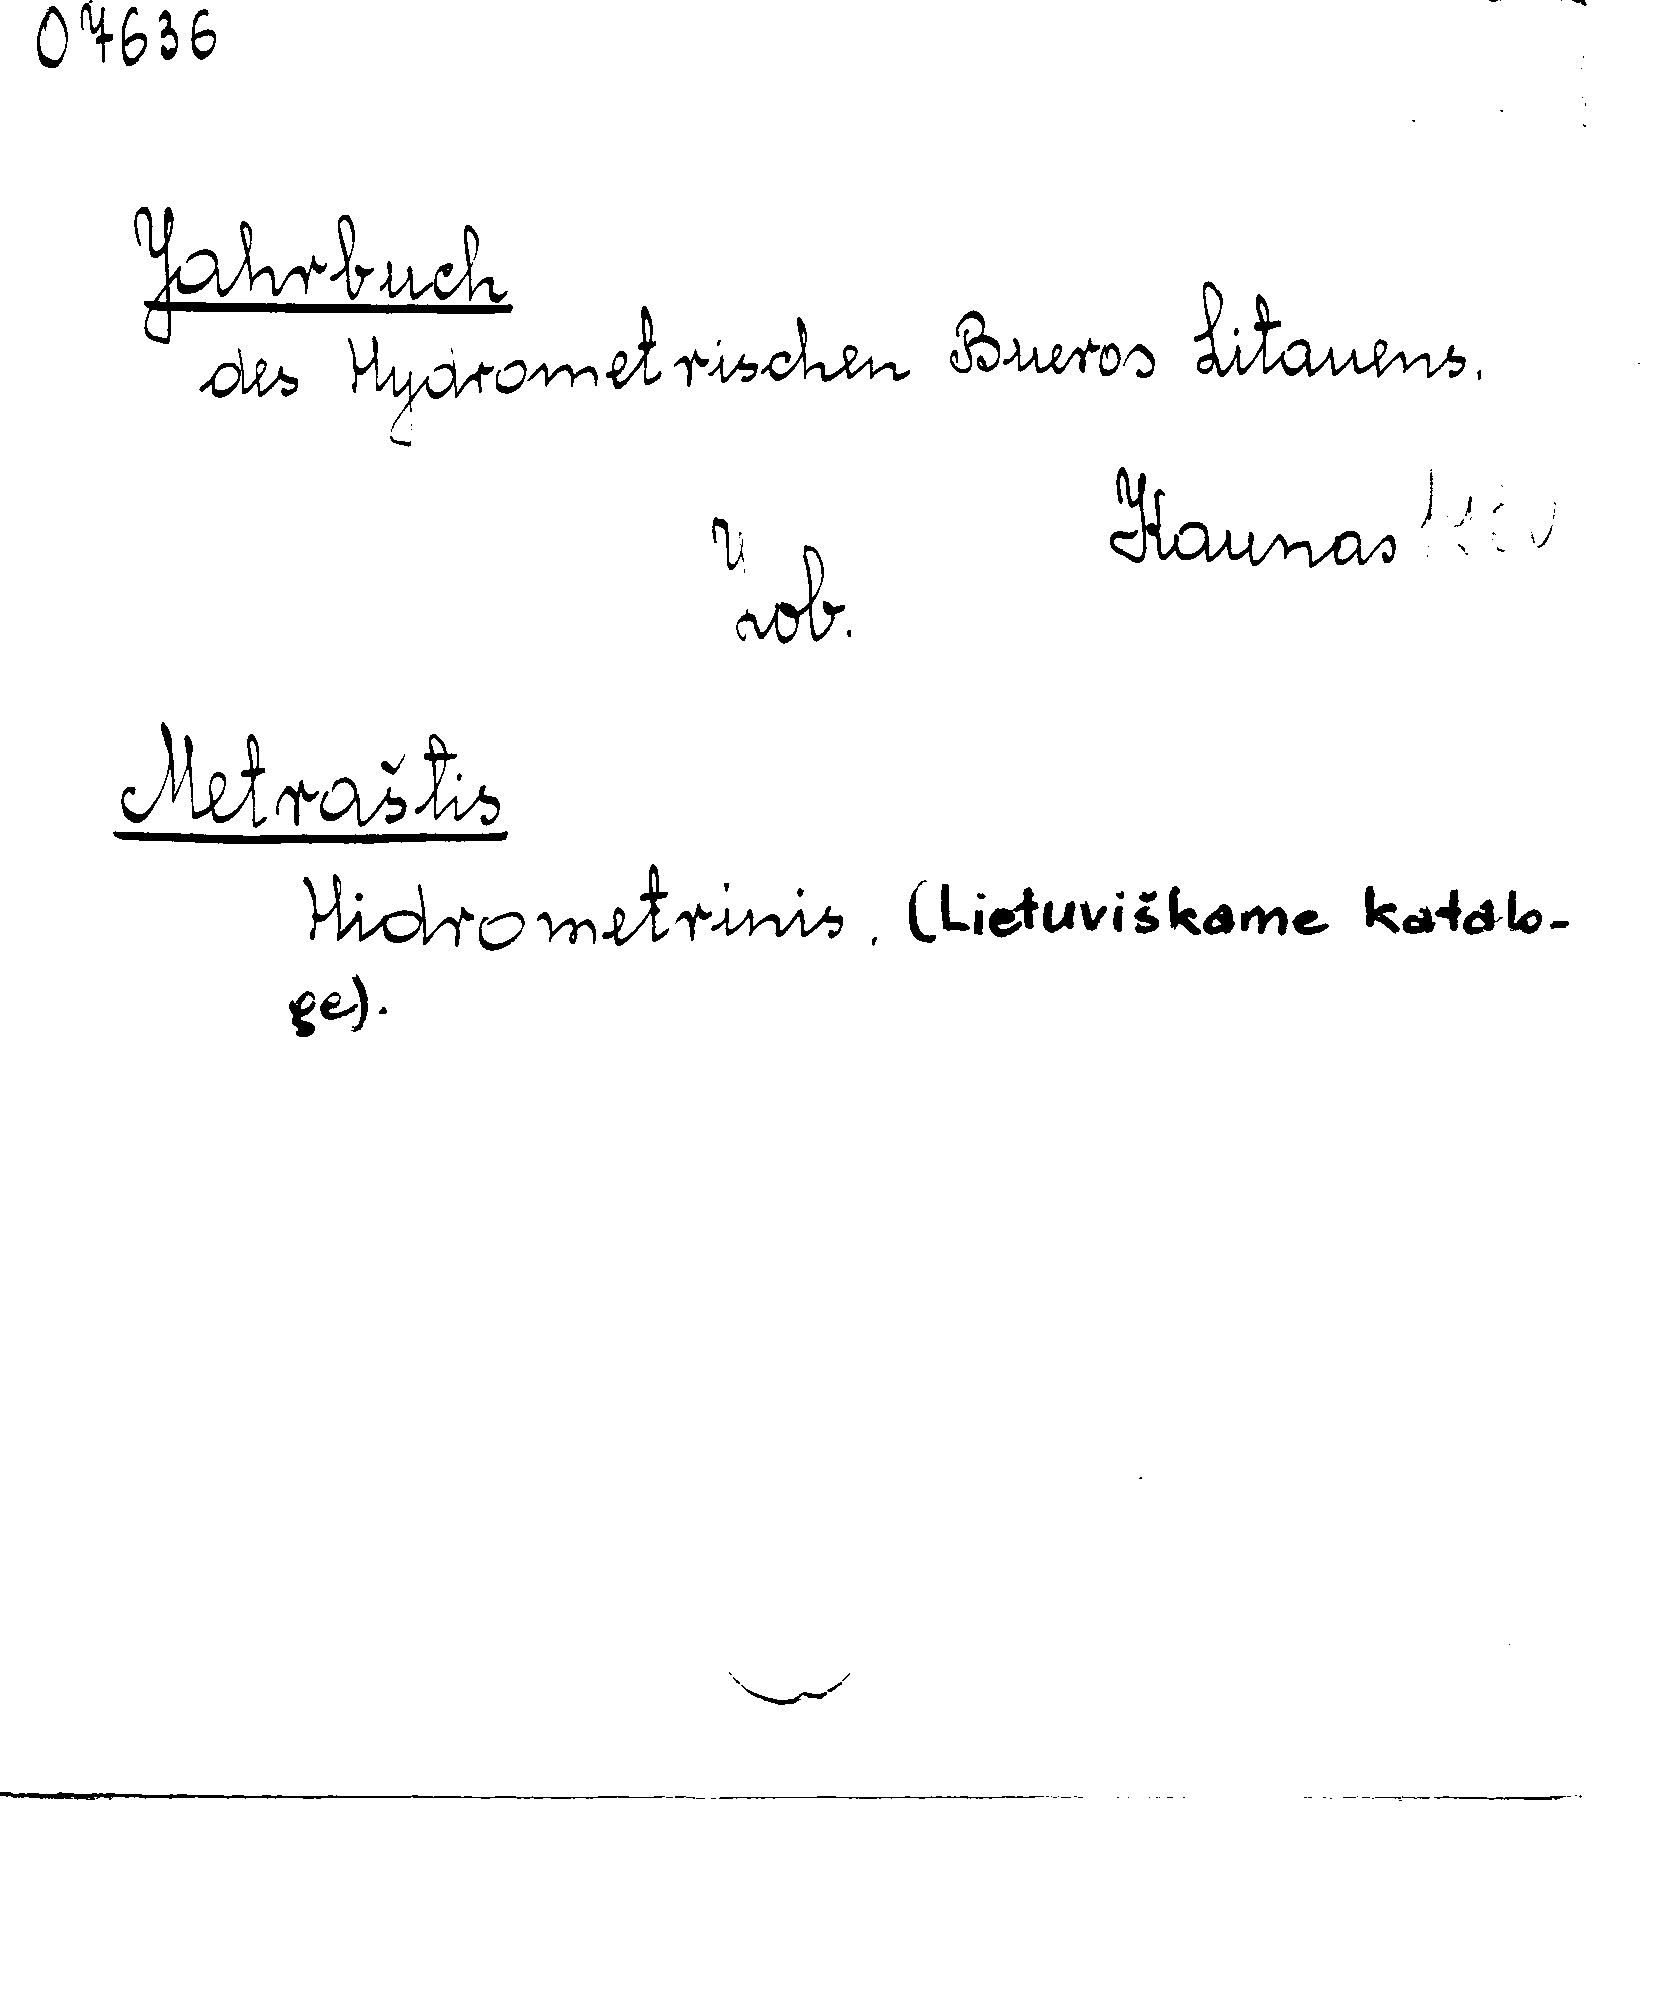 07636
Jahrbuch
des Hydrometrischen Bueros Litauens.
Kaunas
Žiob.
Metraštis
Hidrometrinis. (Lietuviškame katalo-
ge).